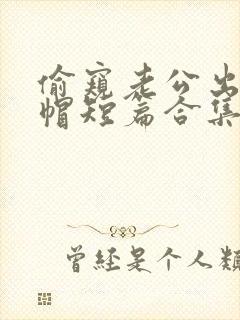 偷窥老公出
帽短篇合集
曾经是个人类